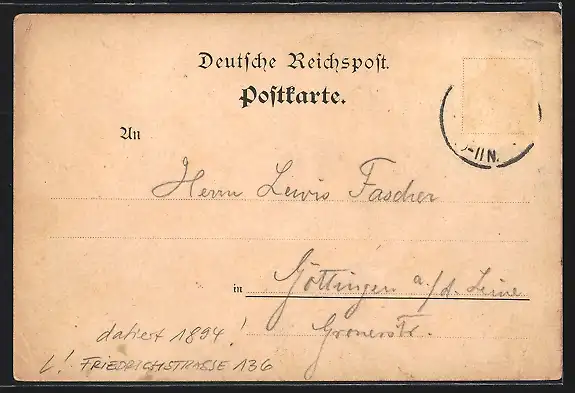 Deutsche Reichspost.
Postkarte.
An
-11 N.
Herrn Lewis Fascher
in Göttingen a./d. Leine
Gronerstr.
datiert 1894!
L! FRIEDRICHSTRASSE 136